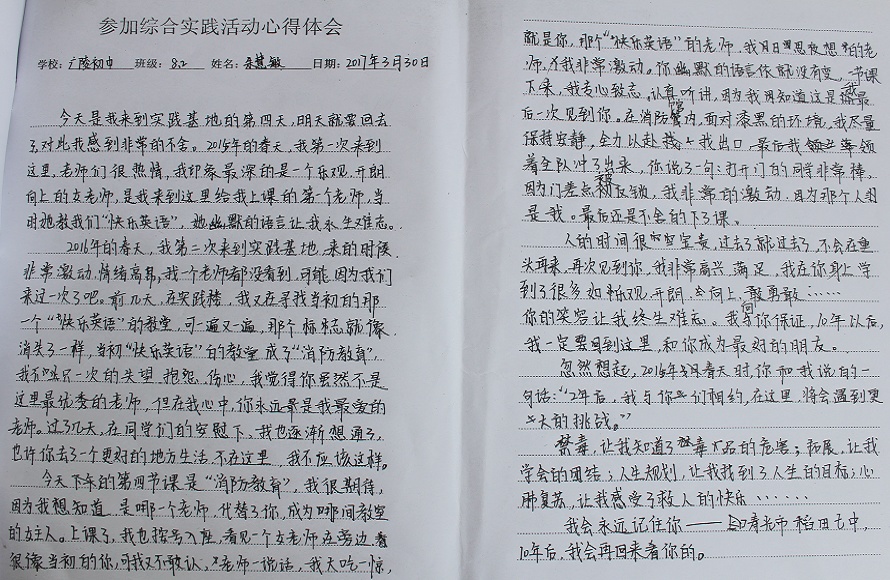 参加综合实践活动心得体会
学校：广陵初中 班级：8.2 姓名：慧敏 日期：2017年3月30日
今天是我来到实践基地的第四天，明天就要回去
了，对此我感到非常的不舍。2015年的春天，我第一次来到
这里，老师们很热情，我印象最深的是一个乐观、开朗
向上的女老师，是我来到这里给我上课的第一个老师，当
时她教我们“快乐英语”，她幽默的语言让我永生难忘。
2016年的春天，我第二次来到实践基地，来的时候
非常激动，情绪高昂，我一个老师都没看到，可能因为我们
来过一次了吧。前几天，在实践楼，我又在寻找当初的那
一个“快乐英语”的教室，可一遍又一遍，那个标志就像
消失了一样，当初“快乐英语”的教室成了“消防教育”，
我不只一次的失望、抱怨、伤心，我觉得你虽然不是
这里最优秀的老师，但在我心中，你永远最是我最爱的
老师。过了几天，在同学们的安慰下，我也逐渐想通了，
也许你去了一个更好的地方生活，不在这里，我不应该这样。
今天下午的第四节课是“消防教育”，我很期待，
因为我想知道，是哪一个老师，代替了你，成为哪间教室
的女主人。上课了，我也按号入座，看见一个女老师在旁边，看
很像当初的你，可我又不敢认，老师一说话，我大吃一惊，
就是你，那个“快乐英语”的老师，我日日思夜想的老
师，我非常激动。你幽默的语言依就没有变，一节课
下来，我专心致志、认真听讲，因为我明知道这是我最
后一次见到你。在消防馆内，面对漆黑的环境，我尽量
保持安静，全力以赴找出口，最后我领
着全队冲了出来，你说了一句：打开门的同学非常棒，
因为门差点被反锁，我非常的激动，因为那个人就
是我。最后还是不舍的下了课。
人的时间很宝贵，过去了就过去了，不会在重
头再来，再次见到你，我非常高兴、满足，我在你身上学
到了很多如乐观、开朗、向上、勇敢……
你的笑容让我终生难忘。我向你保证，10年以后，
我一定要回到这里，和你成为最好的朋友。
忽然想起，2015年春天时，你和我说的一
句话：“2年后，我与你们相约，在这里，将会遇到更
大的挑战。”
禁毒，让我知道了毒品的危害；拓展，让我
学会的团结；人生规划，让我找到了人生的目标；心
肺复苏，让我感受了救人的快乐……
我会永远记住你——
10年后，我会再回来看你的。